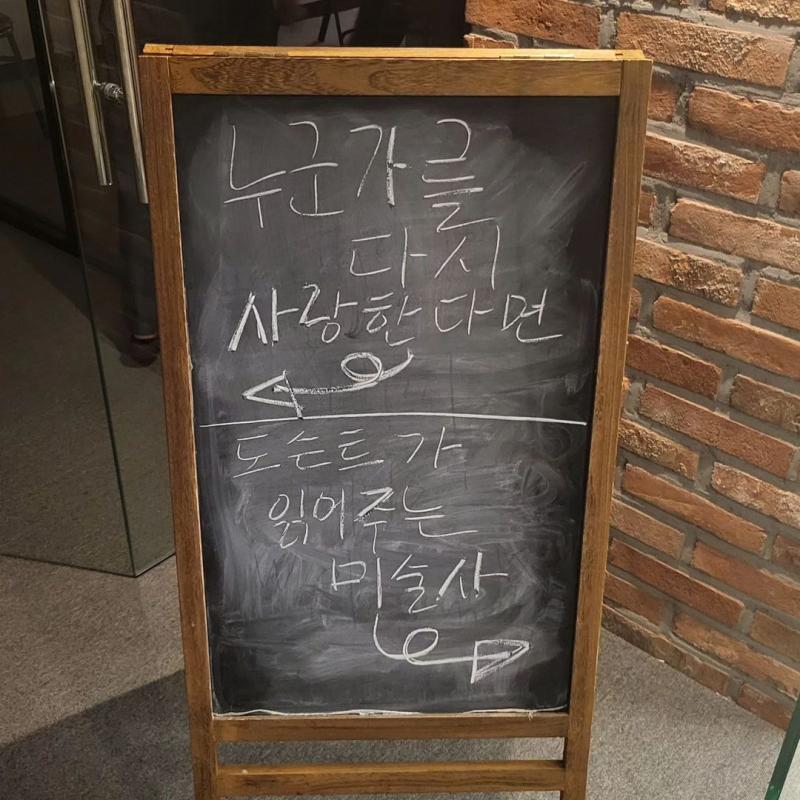 누군가를
다시
사랑한다면
도슨트가
읽어주는
미술사